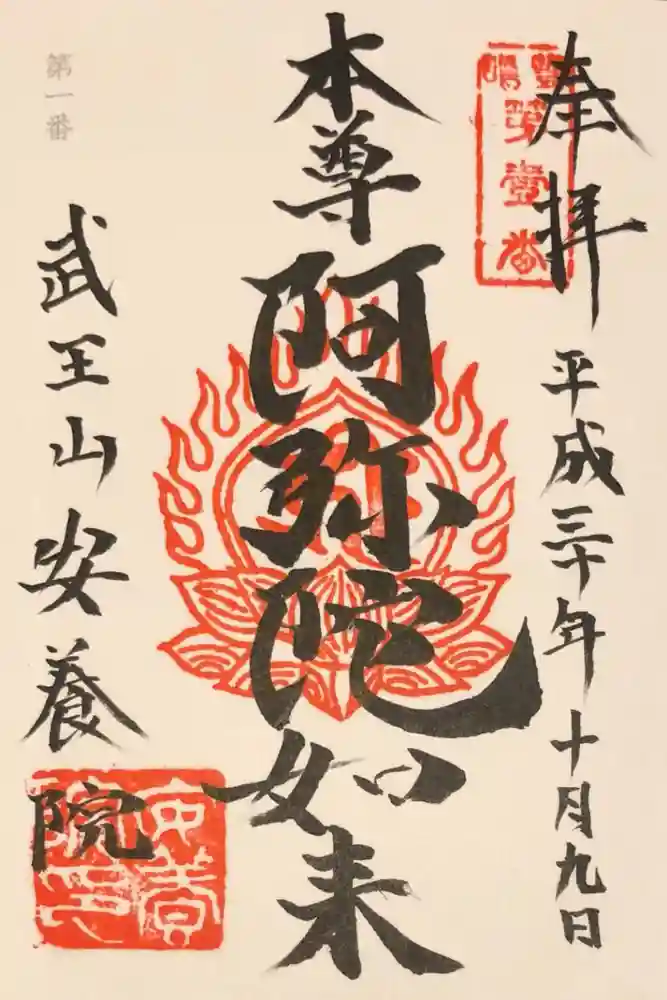 奉拝
平成三十年十月九日
本尊
阿弥陀如来
武王山安養院
第一番